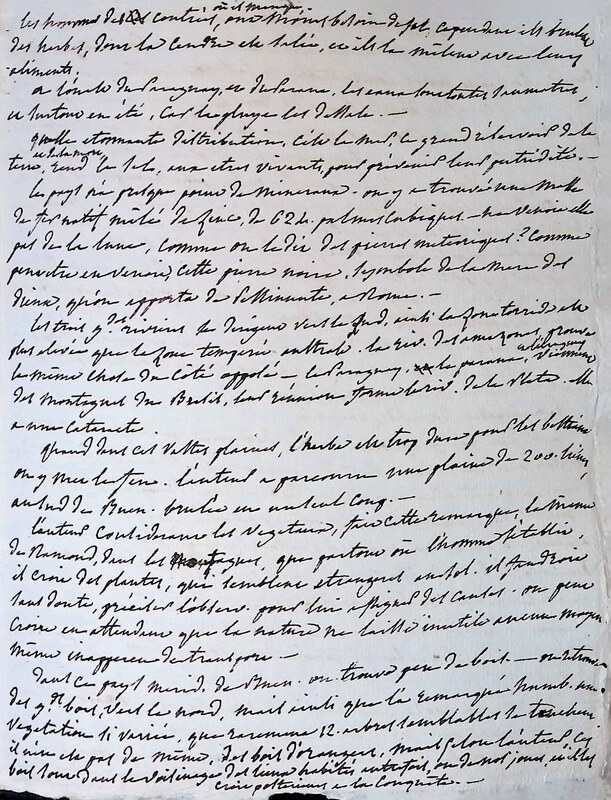 où ils mangent
les hommes des contrées, ont moins besoin de sel, cependant ils brulent
des herbes, dont la cendre est salée, et ils la mêlent avec leurs
aliments.
à l'ouest du Paraguay, et du Parana, les eaux sont toutes saumatres,
et surtout en été, car la pluye les dessale. —
quelle etonnante distribution, c'est le mer, ce grand réservoir de la
terre, rend le sel, aux etres vivants, pour prévenir leur putridité. —
les pays n'a presque point de mineraux. on y a trouvé une masse
de fer natif mêlé de zinc, de 624. palmes cubiques. — ne vient elle
pas de la lune, comme on le dit des pierres meteoriques? comme
peut etre en venoit, cette pierre noire, symbole de la mere des
dieux, qu'on apporta de Pessinunte, a Rome. —
les trois gds rivieres se dirigent vers le sud, ainsi la zone torride est
plus elevée que la zone temperée australe. la riv. des amazones, prouve
la même chose du côté opposé — le Paraguay, le parana, viennent
des montagnes du Bresil, leur réunion forme la riv. de la Plata. elle
a une cataracte.
quand dans ces vastes plaines, l'herbe est trop dure pour les bestiaux
on y met le feu. l'auteur a parcouru une plaine de 200. lieues
au sud de Buen. brulée en un seul coup. —
l'auteur considerant les vegetaux, fait cette remarque, la même
de Ramond, dans les montagnes, que partout où l'homme s'établit,
il croit des plantes, qui semblent etrangeres au sol. il faudroit
sans doute, préciser l'observ. pour lui assigner des causes. on peut
croire en attendant que la nature ne laisse inutile aucun moyen
même inapperçu de transport. —
dans ce pays merid. de Buen. on trouve peu de bois. — on retrouve
des gds bois, vers le nord, mais ainsi que l'a remarqué humb. une
vegetation si variée, que rarement 12. arbres semblables se touchent
il n'en est pas de même, des bois d'orangers, mais selon l'auteur ces
bois sont dans le voisinage des lieux habités autrefois, ou de nos jours, et il les
croit posterieurs a la conquête. —